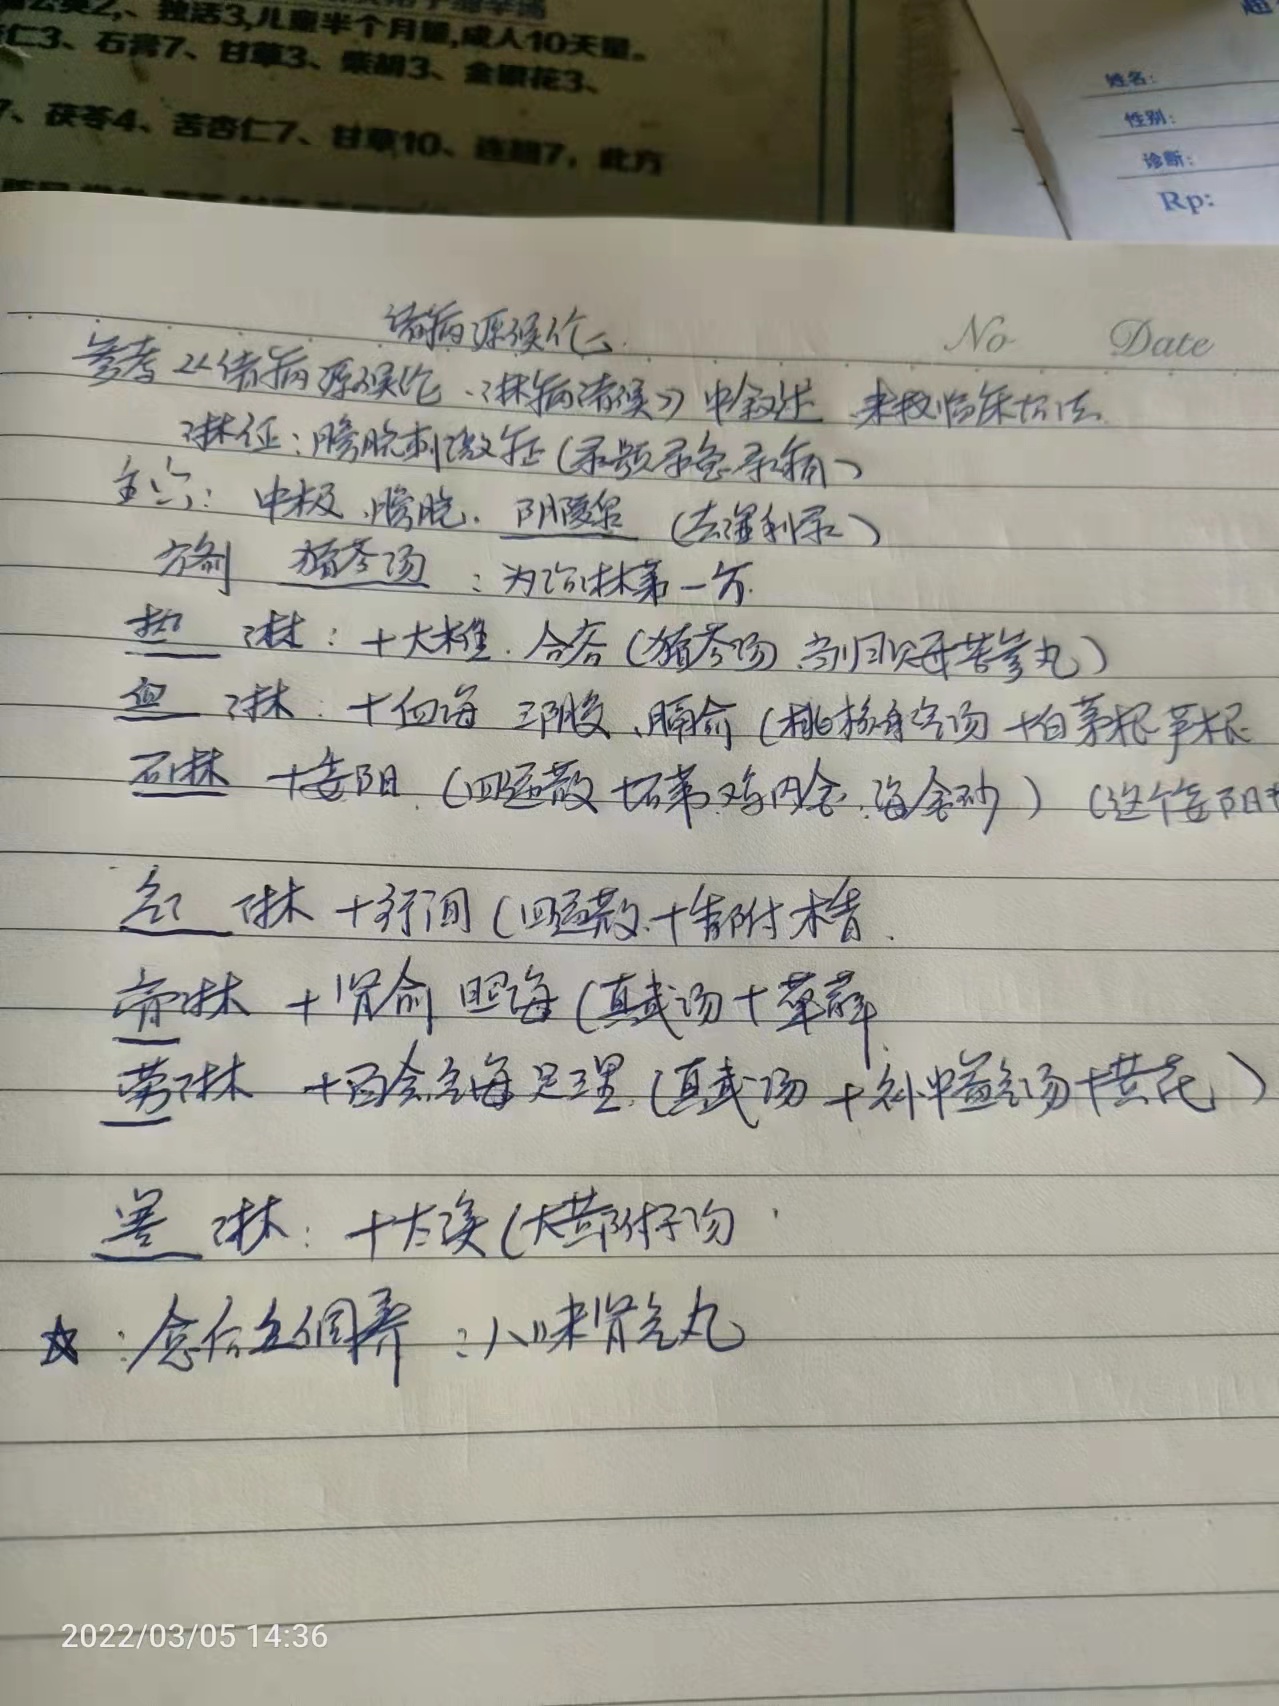 独活3,儿童半个月量,成人10天量。
仁3、石膏7、甘草3、柴胡3、金银花3、
7、茯苓4、苦杏仁7、甘草10、连翘7，此方
姓名:
性别:
诊断:
Rp:
No Date
诸病源候论
参考《诸病源候论·淋病诸候》中叙述 来板临床
淋征:膀胱刺激征(尿频尿急尿痛)
主穴: 中极、膀胱. 阴陵泉 (去湿利尿)
方剂 猪苓汤 :为治淋第一方.
热 淋: +大椎. 合谷(猪苓汤 当归贝母苦参丸)
血 淋: +血海 三阴交、膈俞(桃核承气汤+白茅根芦根
石淋 +委阳.(四逆散+石苇鸡内金、海金砂) (这个委阳
气 淋 +行间(四逆散.+香附木香.
膏淋 +肾俞 照海(真武汤+萆薢
劳淋 +百会气海足三里.(真武汤+补中益气汤+黄芪)
寒 淋: +太溪(大黄附子汤
☆:愈后 调养:八味肾气丸
2022/03/05 14:36